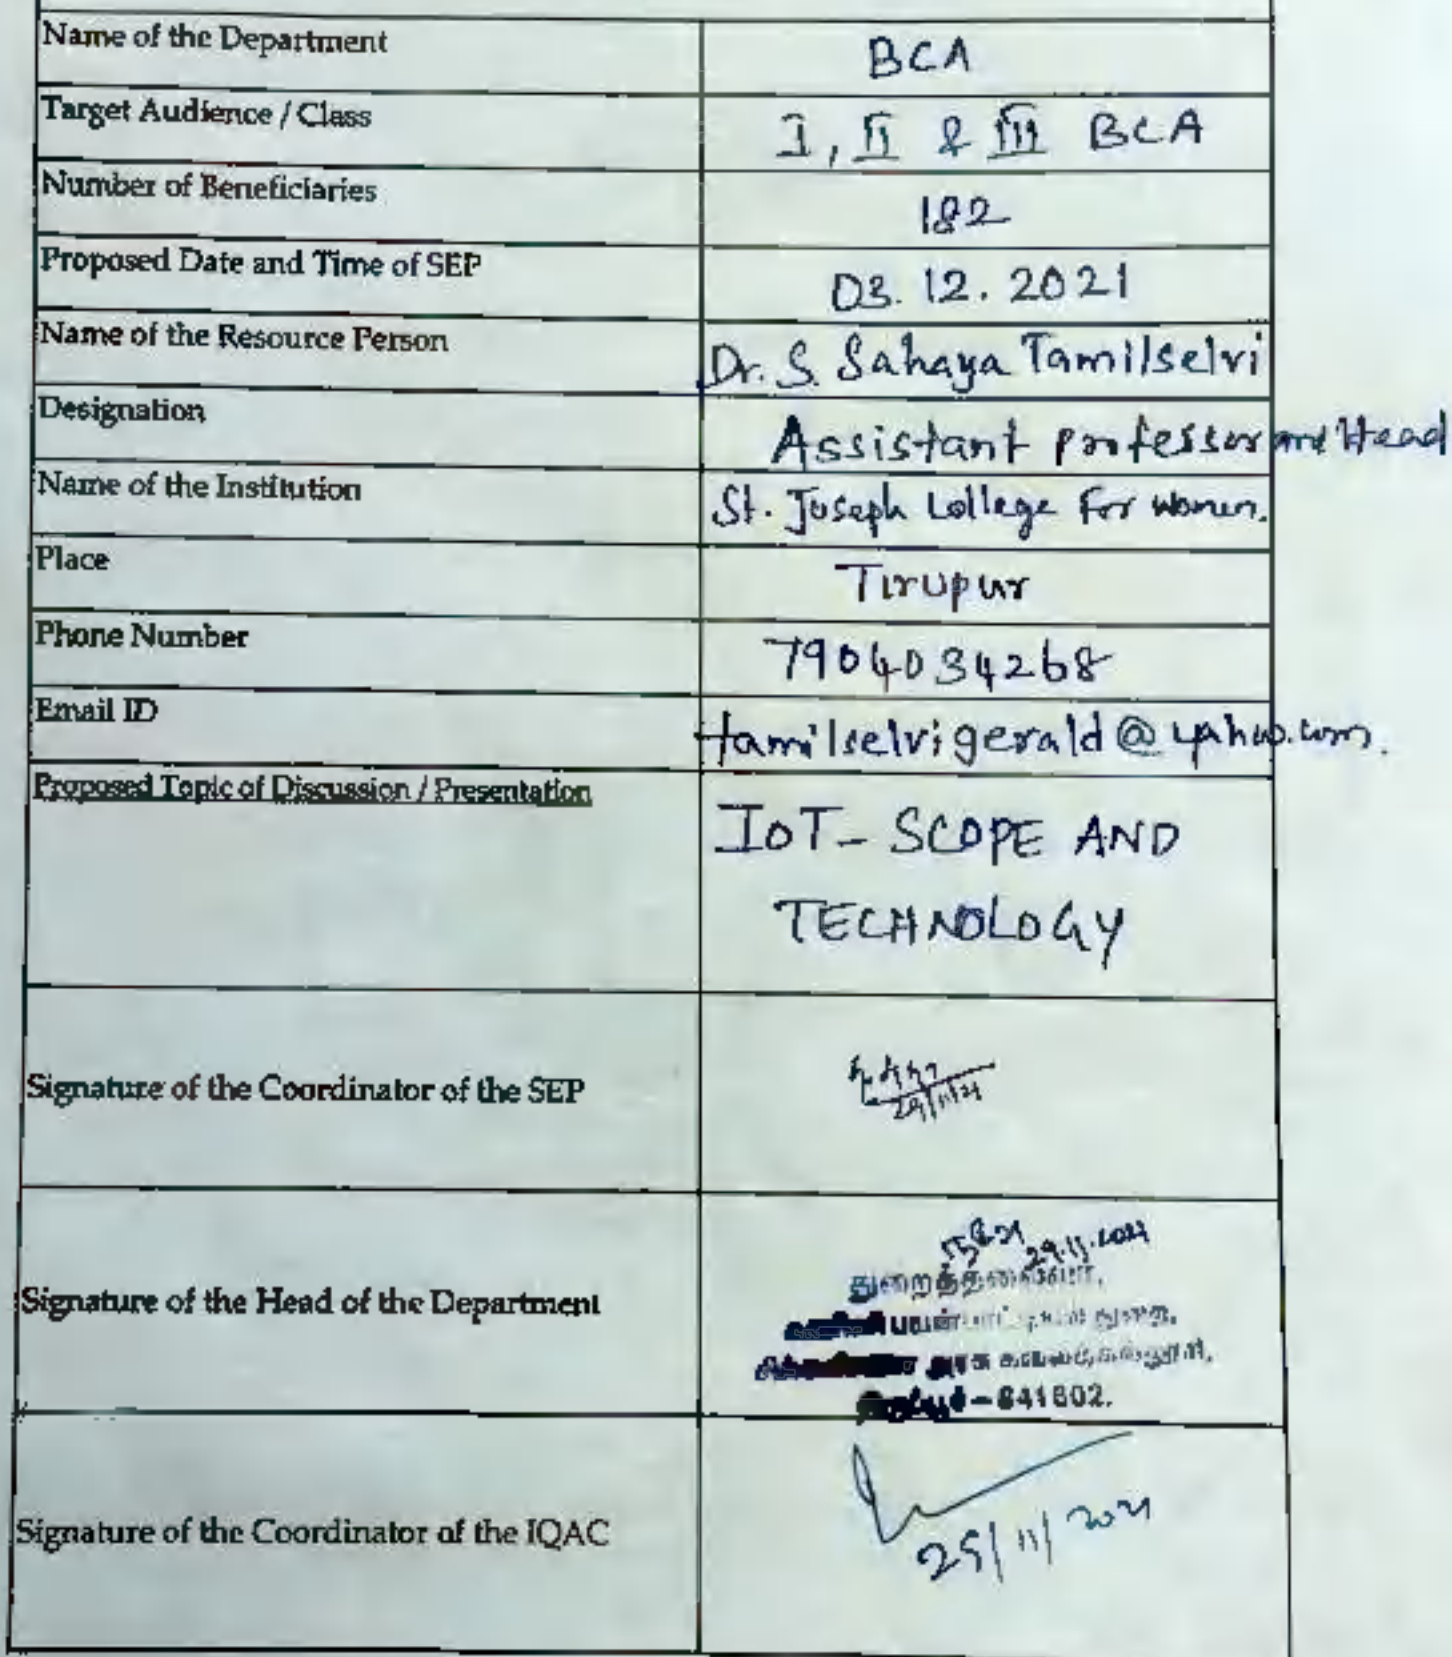 Name of the Department BCA
Target Audience / Class I, II & III BCA
Number of Beneficiaries 182
Proposed Date and Time of SEP 03.12.2021
Name of the Resource Person Dr. S. Sahaya Tamilselvi
Designation Assistant professor and Head
Name of the Institution St. Joseph College for women.
Place Tirupur
Phone Number 7904034268
Email ID tamilselvigerald@yahoo.com.
Proposed Topic of Discussion / Presentation IOT - SCOPE AND
TECHNOLOGY
Signature of the Coordinator of the SEP
29/11/21
29.11.2021
துறைத்தலைவர்,
Signature of the Head of the Department
துறை,
அரசு கலைக்கல்லூரி,
-641602.
Signature of the Coordinator of the IQAC
29/11/2021